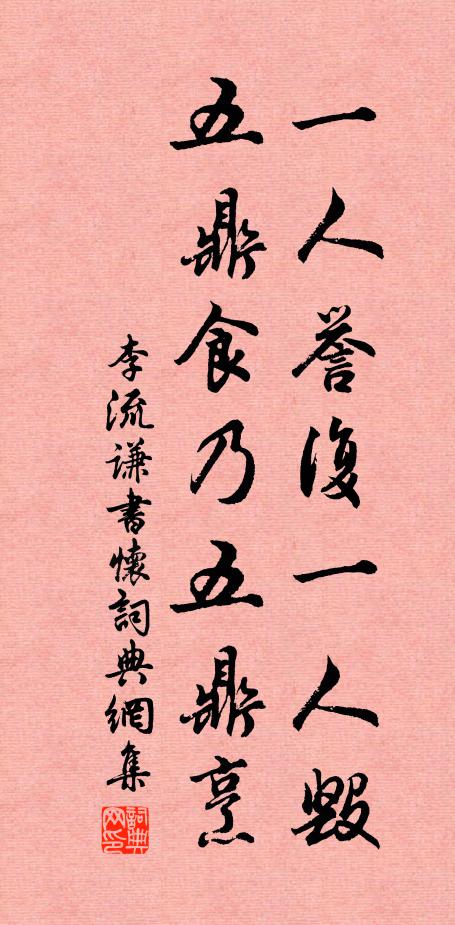 一人誉復一人毀
五鼎食乃五鼎烹
李流謙書懷詞典網集
詞典网印